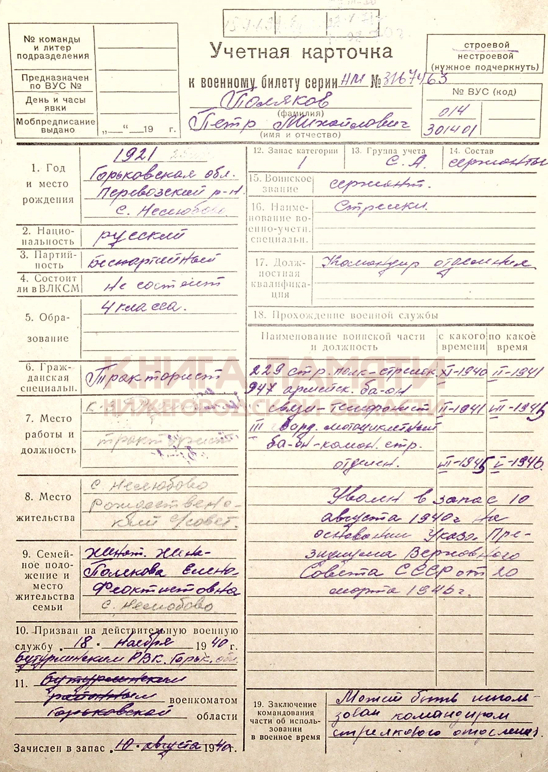 № команды
и литер
подразделения
Предназначен
по ВУС №
День и часы
явки
Мобпредписание
выдано
„ “ 19 г.
Учетная карточка
к военному билету серии НМ № 3167463
Поляков
(фамилия)
Петр Михайлович
(имя и отчество)
строевой
нестроевой
(нужное подчеркнуть)
№ ВУС (код)
014
301401
1. Год
и место
рождения
1921
Горьковская обл.
Перевозский р-н
с. Неслюбово
2. Нацио-
нальность
русский
3. Партий-
ность
Беспартийный
4. Состоит
ли в ВЛКСМ
не состоит
5. Обра-
зование
4 класса.
6. Граж-
данская
специальн.
Тракторист
7. Место
работы и
должность
тракторист
8. Место
жительства
с. Неслюбово
Рождествено-
9. Семей-
ное поло-
жение и
место
жительства
семьи
Женат. жена-
Полякова Елена
Феоктистовна
с. Неслюбово
10. Призван на действительную военную
службу 18. ноября 1940 г.
Бутурлинским РВК. Горьк. обл.
11. Бутурлинским
районным военкоматом
Горьковской области
Зачислен в запас 10 августа 1946г
12. Запас категории
1
13. Группа учета
С. А.
14. Состав
сержанты
15. Воинское
звание
сержант.
16. Наиме-
нование во-
енно-учетн.
специальн.
Стрелки.
17. Долж-
ностная
квалифика-
ция
Командир отделения
18. Прохождение военной службы
Наименование воинской части
и должность
с какого
времени
по какое
время
229 стр. полк-стрелок XI-1940 II-1941
947 армейск. ба-он
связи-телефонист II-1941 III-1945
III борд. мотоциклетный
ба-он-коман. стр.
отделен. III-1945 V-1946
Уволен в запас 10
августа 1940г на
основании Указа Пре-
зидиума Верховного
Совета СССР от 20
марта 1946г.
19. Заключение
командования
части об исполь-
зовании
в военное время
Может быть исполь-
зован командиром
стрелкового отделения.
КНИГА ПАМЯТИ
НИЖЕГОРОДСКОЙ ОБЛАСТИ